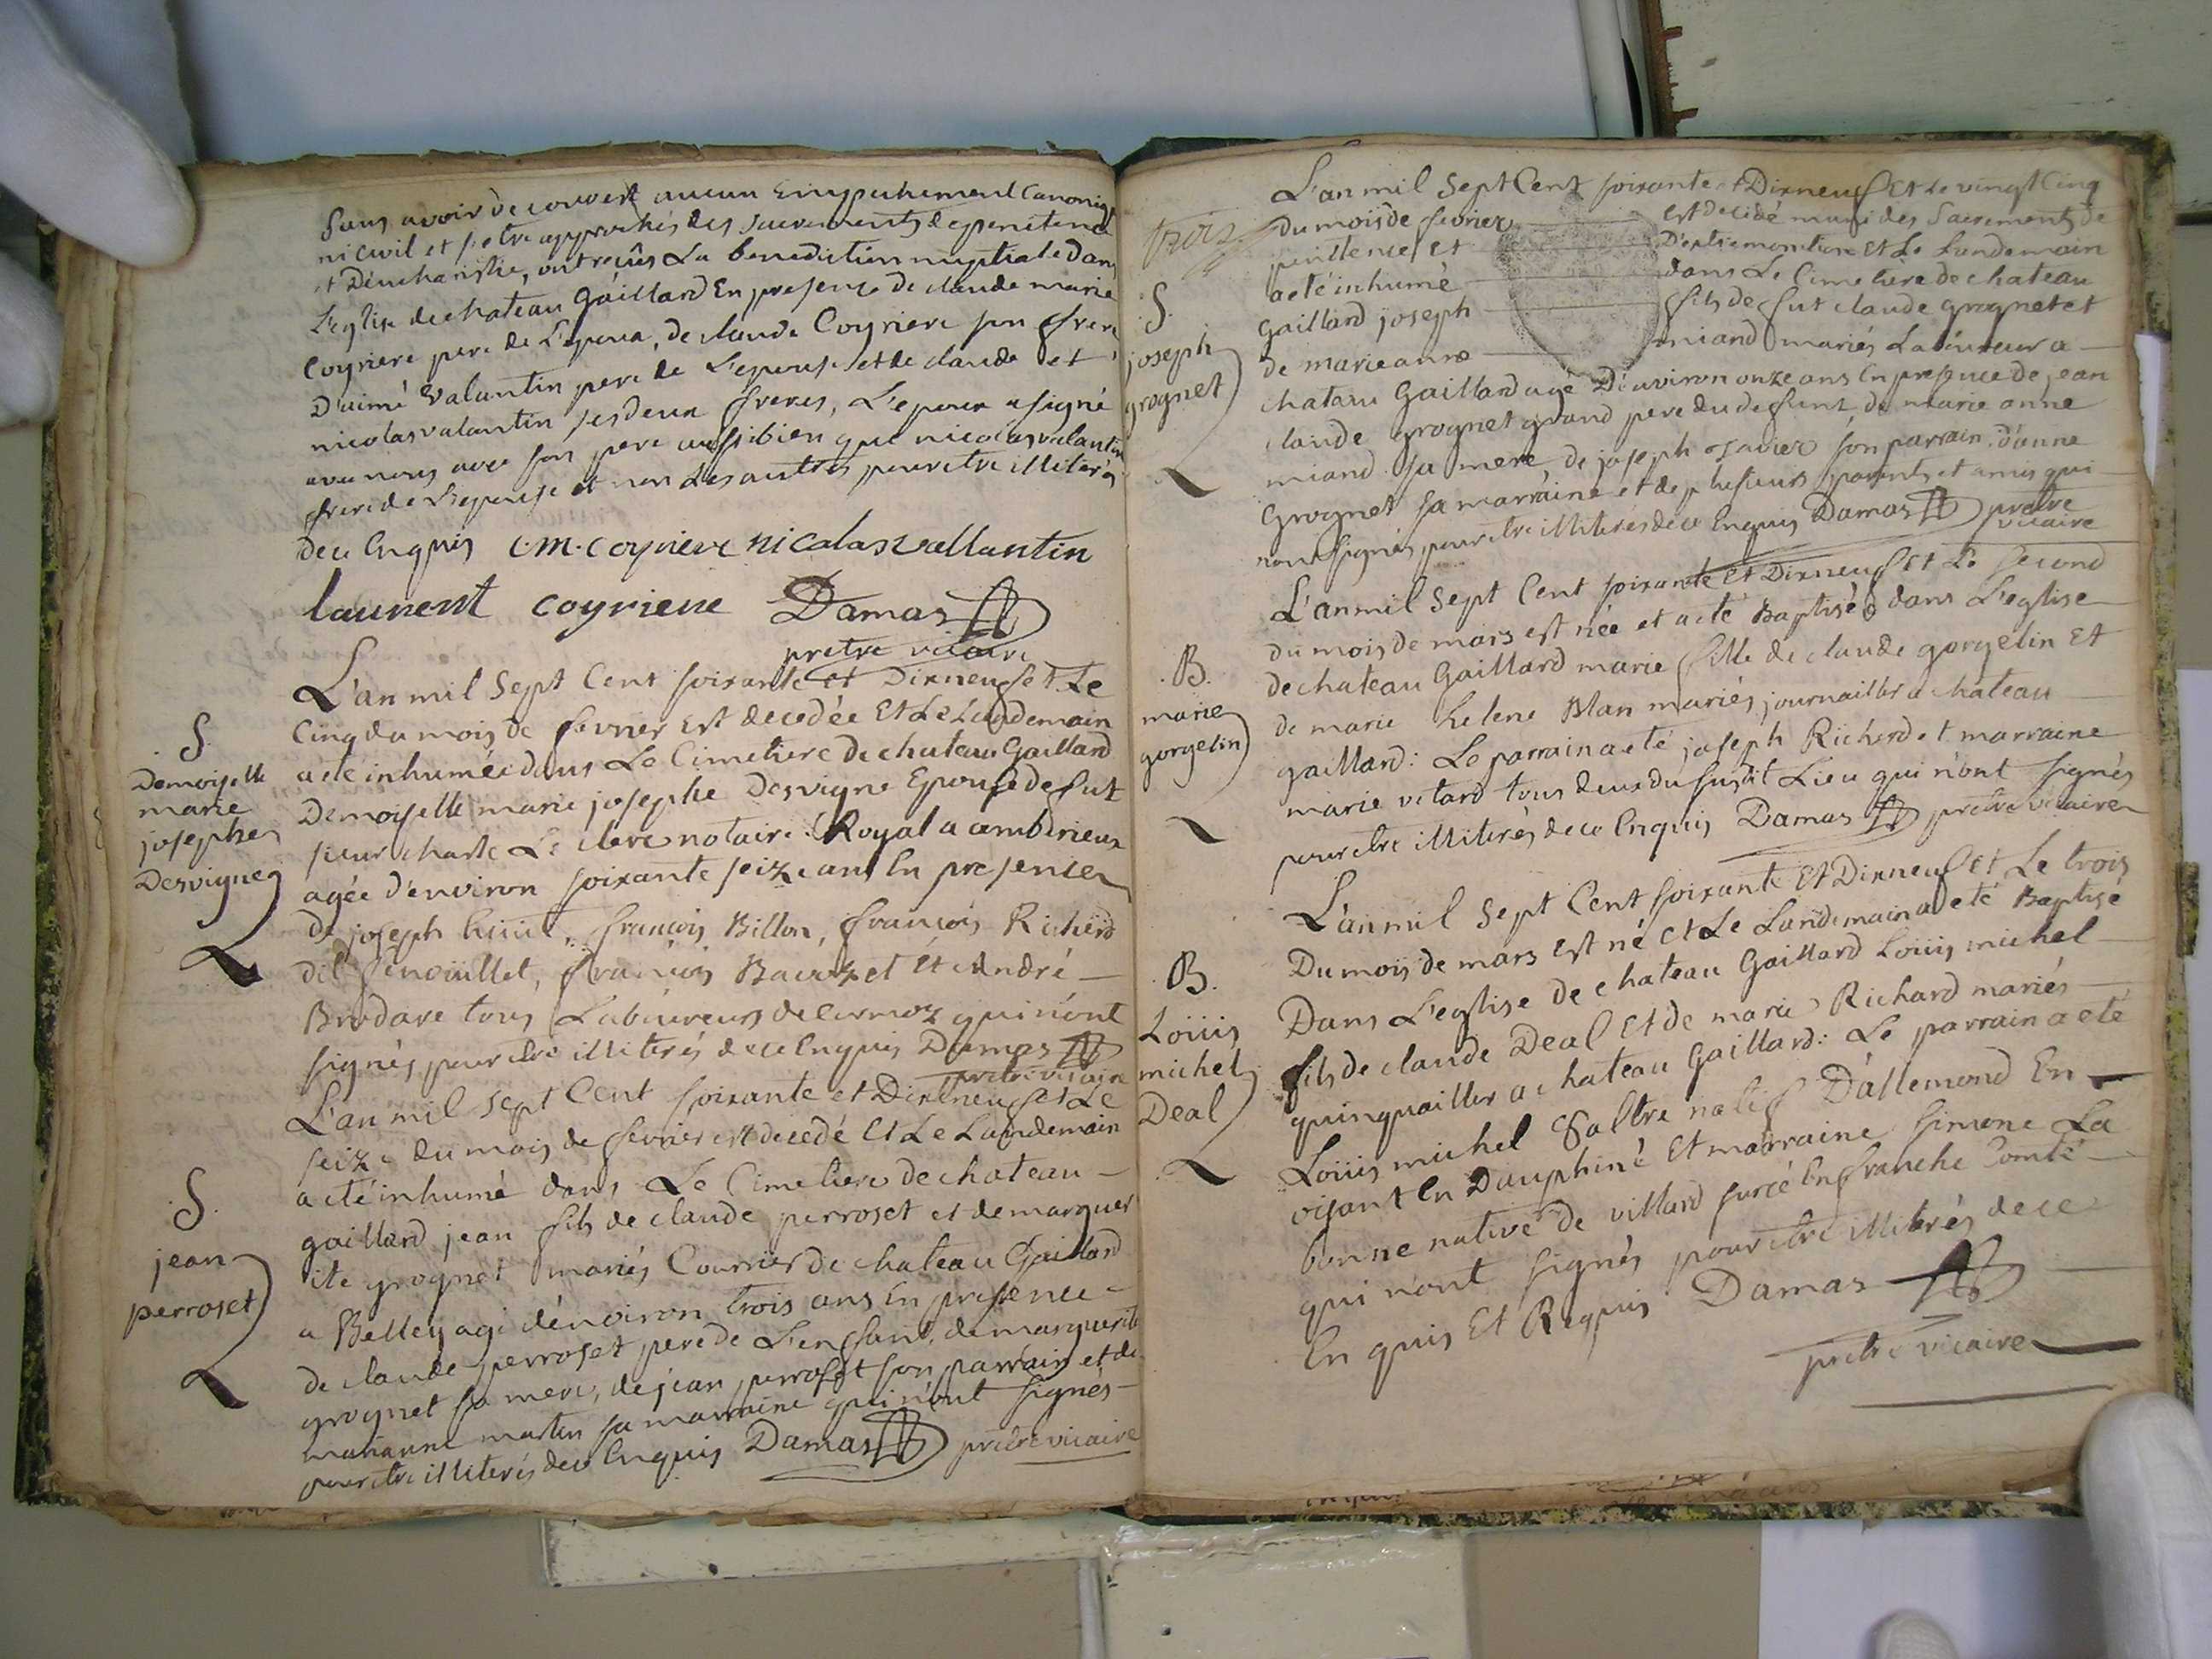 Sans avoir découvert aucun Empechement Canoniq
ni Civil et s'etre approchés des sacrements de penitence
et D'eucharistie, ont reçus La benediction nuptiale dans
L'eglise de chateau Gaillard En presence de claude marie
Coyriere pere de L'epoux, de claude Coyriere son frere
D'aimé Valantin pere de L'epouse et de claude et
nicolas valantin ses deux freres, L'epoux a signé
avec nous avec son pere aussi bien que nicolas valantin
frere de L'epouse et non Les autres pour etre illiterés
de ce Enquis C.M. Coyriere nicalas vallantin
laurent coyriere Damas
pretre vicaire
L'an mil Sept Cent soixante et Dixneuf et Le
Cinq du mois de fevrier Est decedée Et Le Landemain
a eté inhumée dans Le Cimetiere de chateau Gaillard
Demoiselle marie josephe Desvigne Epouse de fut
sieur charle Le clerc notaire Royal a amberieux
agée d'environ soixante seize ans En presence
de joseph françois Billon, françois Richerd
dit fenoüillet, françois et André
Brodare tous Laboureurs de Cormoz qui n'ont
signés pour etre illiterés de ce Enquis Damas
pretre vicaire
L'an mil Sept Cent soixante et Dixneuf et Le
seize du mois de fevrier est decedé Et Le Landemain
a eté inhumé dans Le Cimetiere de chateau
gaillard jean fils de claude perroset et de marguer
ite grognet mariés Courrier de chateau Gaillard
a Belley agé d'environ trois ans En presence
de claude perroset pere de L'enfant, de marguerite
grognet sa mere, de jean perroset son parrain et de
marianne martin sa marraine qui n'ont signés
pour etre illiterés de ce Enquis Damas pretre vicaire
S.
Demoiselle
marie
josephe
Desvigne
S.
jean
perroset
trois
L'an mil Sept Cent soixante et Dixneuf Et Le vingt Cinq
du mois de fevrier est decidé muni des Sacrements de
penitence et D'extremonction Et Le Landemain
a eté inhumé dans Le Cimetiere de chateau
Gaillard joseph fils de fut claude grognet et
de marie anne miand mariés Laboureur a
chateau Gaillard agé D'environ onze ans En presence de jean
claude grognet grand pere du defunt, de marie anne
miand sa mere, de joseph son parrain d'anne
Grognet sa marraine et de plusieurs parents et amis qui
n'ont signés pour etre illiterés de ce Enquis Damas pretre
vicaire
L'an mil Sept Cent soixante Et Dixneuf Et Le second
du mois de mars est née et a eté Baptisée dans L'eglise
de chateau Gaillard marie fille de claude gorgelin Et
de marie helene Blan mariés journailler a chateau
gaillard: Le parrain a eté joseph Richerd et marraine
marie vetard tous deux du susdit Lieu qui n'ont signés
pour etre illiterés de ce Enquis Damas pretre vicaire
L'an mil Sept Cent soixante Et Dixneuf et Le trois
Du mois de mars est né et Le Landemain a eté Baptisé
Dans L'eglise de chateau Gaillard Loüis michel
fils de claude Deal Et de marie Richard mariés
quinquailler a chateau Gaillard: Le parrain a eté
Loüis michel natif D'allemond En
oisant En Dauphiné Et marraine simone La
bonne native de villard En franche Comté
qui n'ont signés pour etre illiterés de ce
En quis Et Requis Damas
pretre vicaire
S.
joseph
grognet
B.
marie
gorgelin
B.
Loüis
michel
Deal